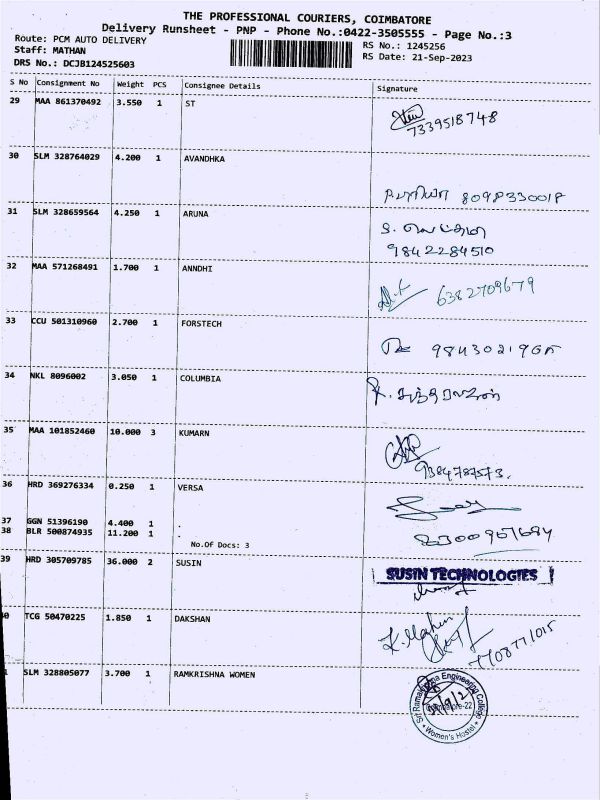 THE PROFESSIONAL COURIERS, COIMBATORE
Delivery Runsheet - PNP - Phone No.:0422-3505555 - Page No.:3
Route: PCM AUTO DELIVERY
RS No.: 1245256
Staff: MATHAN
RS Date: 21-Sep-2023
DRS No.: DCJB124525603
S No Consignment No Weight PCS Consignee Details Signature
29 MAA 861370492 3.550 1 ST
7339518748
30 SLM 328764029 4.200 1 AVANDHKA
8098330018
31 SLM 328659564 4.250 1 ARUNA
9842284510
32 MAA 571268491 1.700 1 ANNDHI
6382709679
33 CCU 501310960 2.700 1 FORSTECH
34 NKL 8096002 3.050 1 COLUMBIA
35 MAA 101852460 10.000 3 KUMARN
9384787573.
36 HRD 369276334 0.250 1 VERSA
37 GGN 51396190 4.400 1 .
38 BLR 500874935 11.200 1 .
No.Of Docs: 3
39 HRD 305709785 36.000 2 SUSIN
SUSIN TECHNOLOGIES
TCG 50470225 1.850 1 DAKSHAN
7708771015
SLM 328805077 3.700 1 RAMKRISHNA WOMEN
Engineering College
Women's Hostel